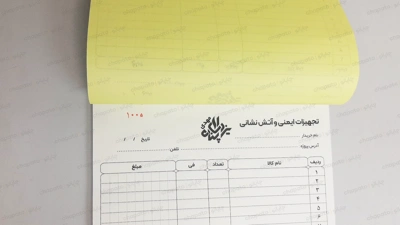 ۱۰۰۵
تجهیزات ایمنی و آتش نشانی
نام خریدار:
تاریخ / /
آدرس پروژه:
تلفن:
ردیف نام کالا تعداد فی مبلغ
۱
۲
۳
۴
۵
۶